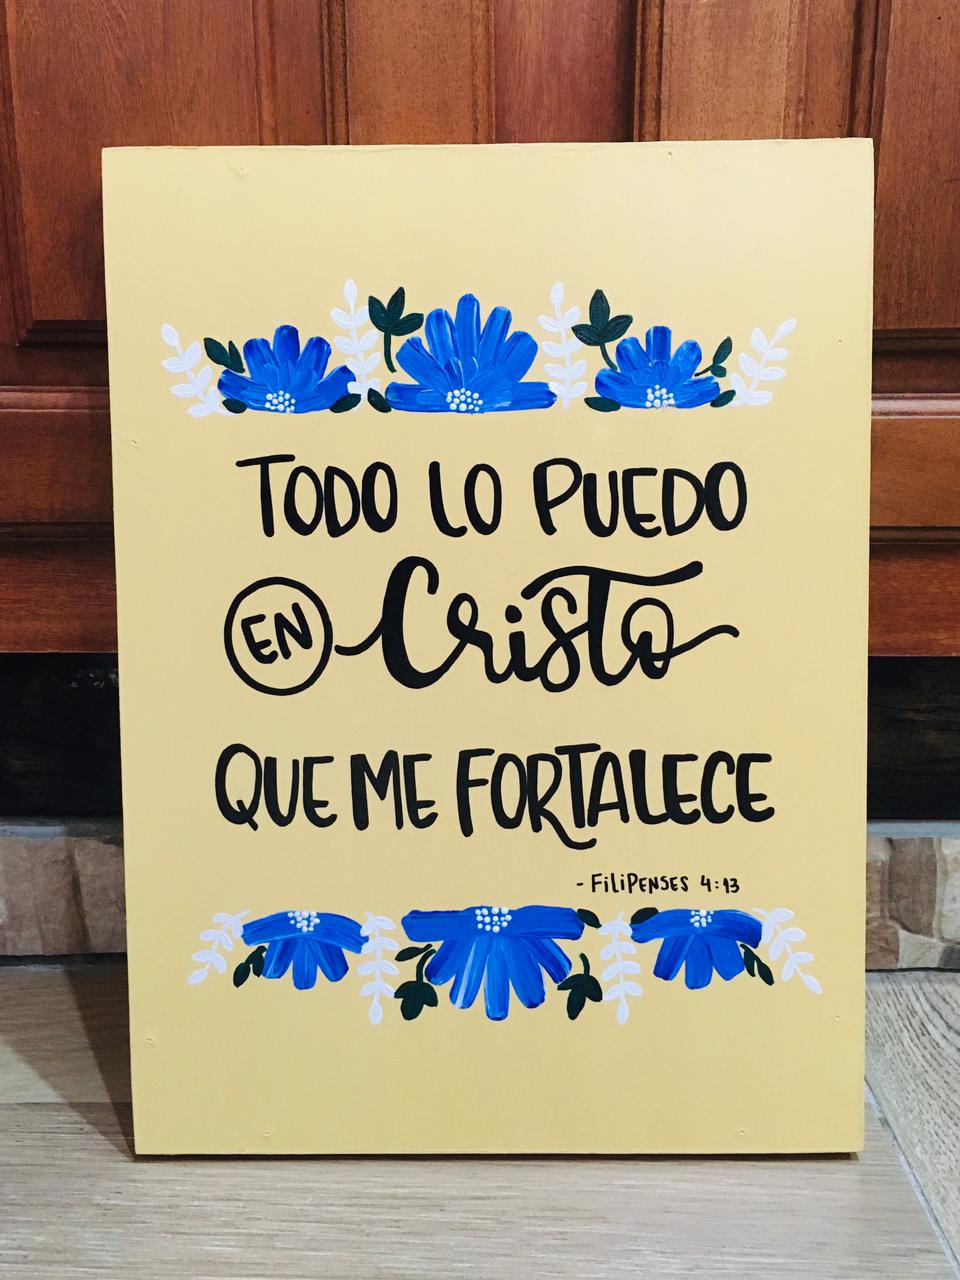 TODO LO PUEDO
EN Cristo
QUE ME FORTALECE
- FILIPENSES 4:13